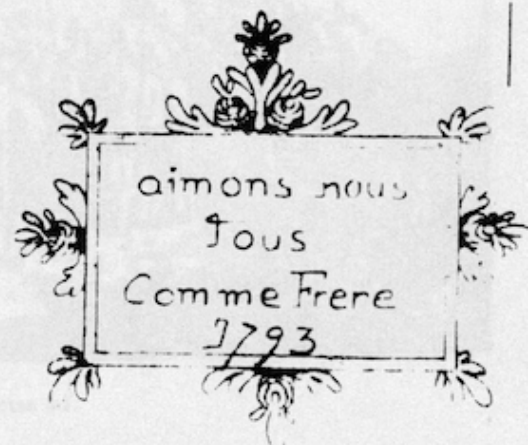 aimons nous
Tous
Comme Frere
1793